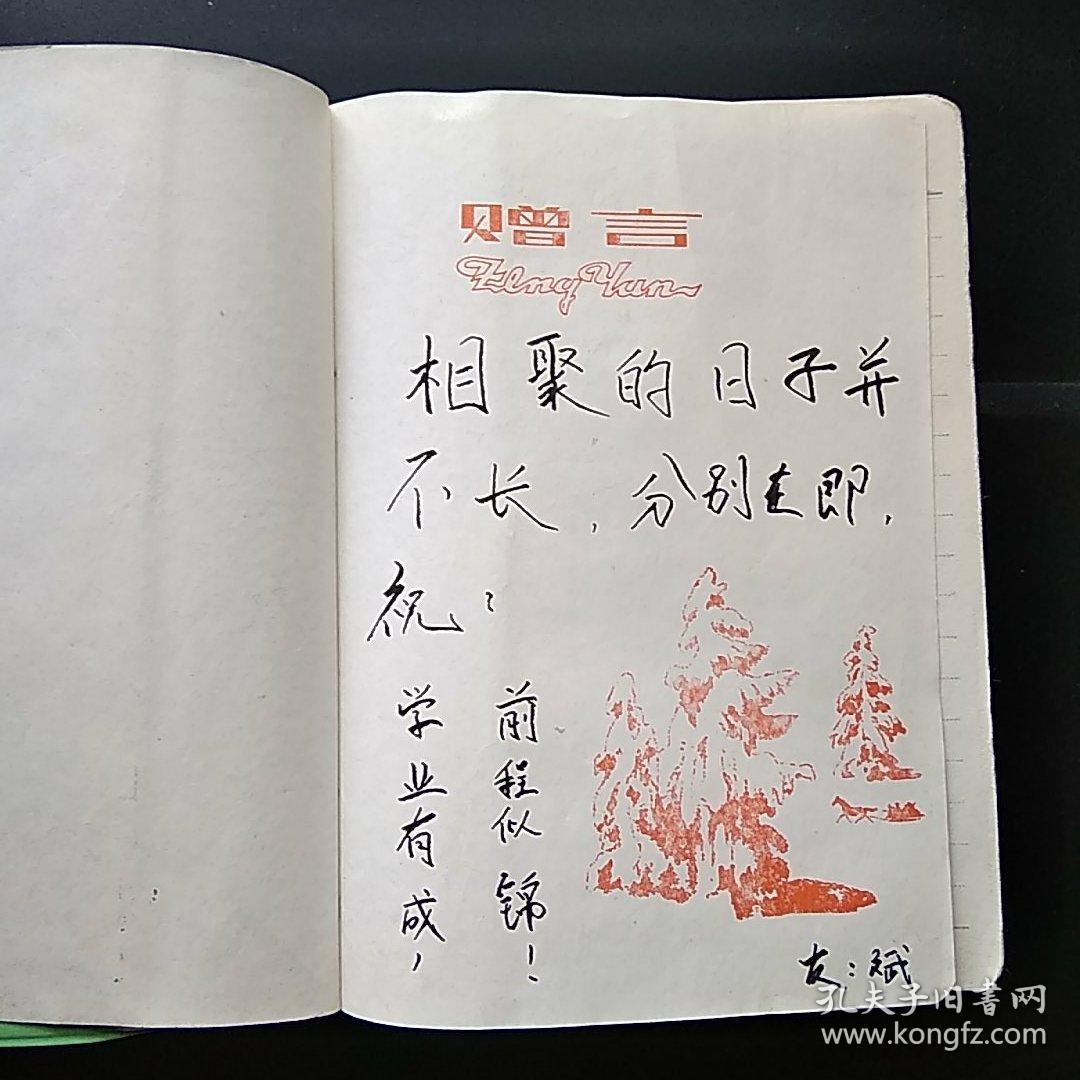 赠言
Zeng Yan
相聚的日子并
不长，分别在即，
祝：
学业有成，
前程似锦！
友：斌
孔夫子旧书网
www.kongfz.com